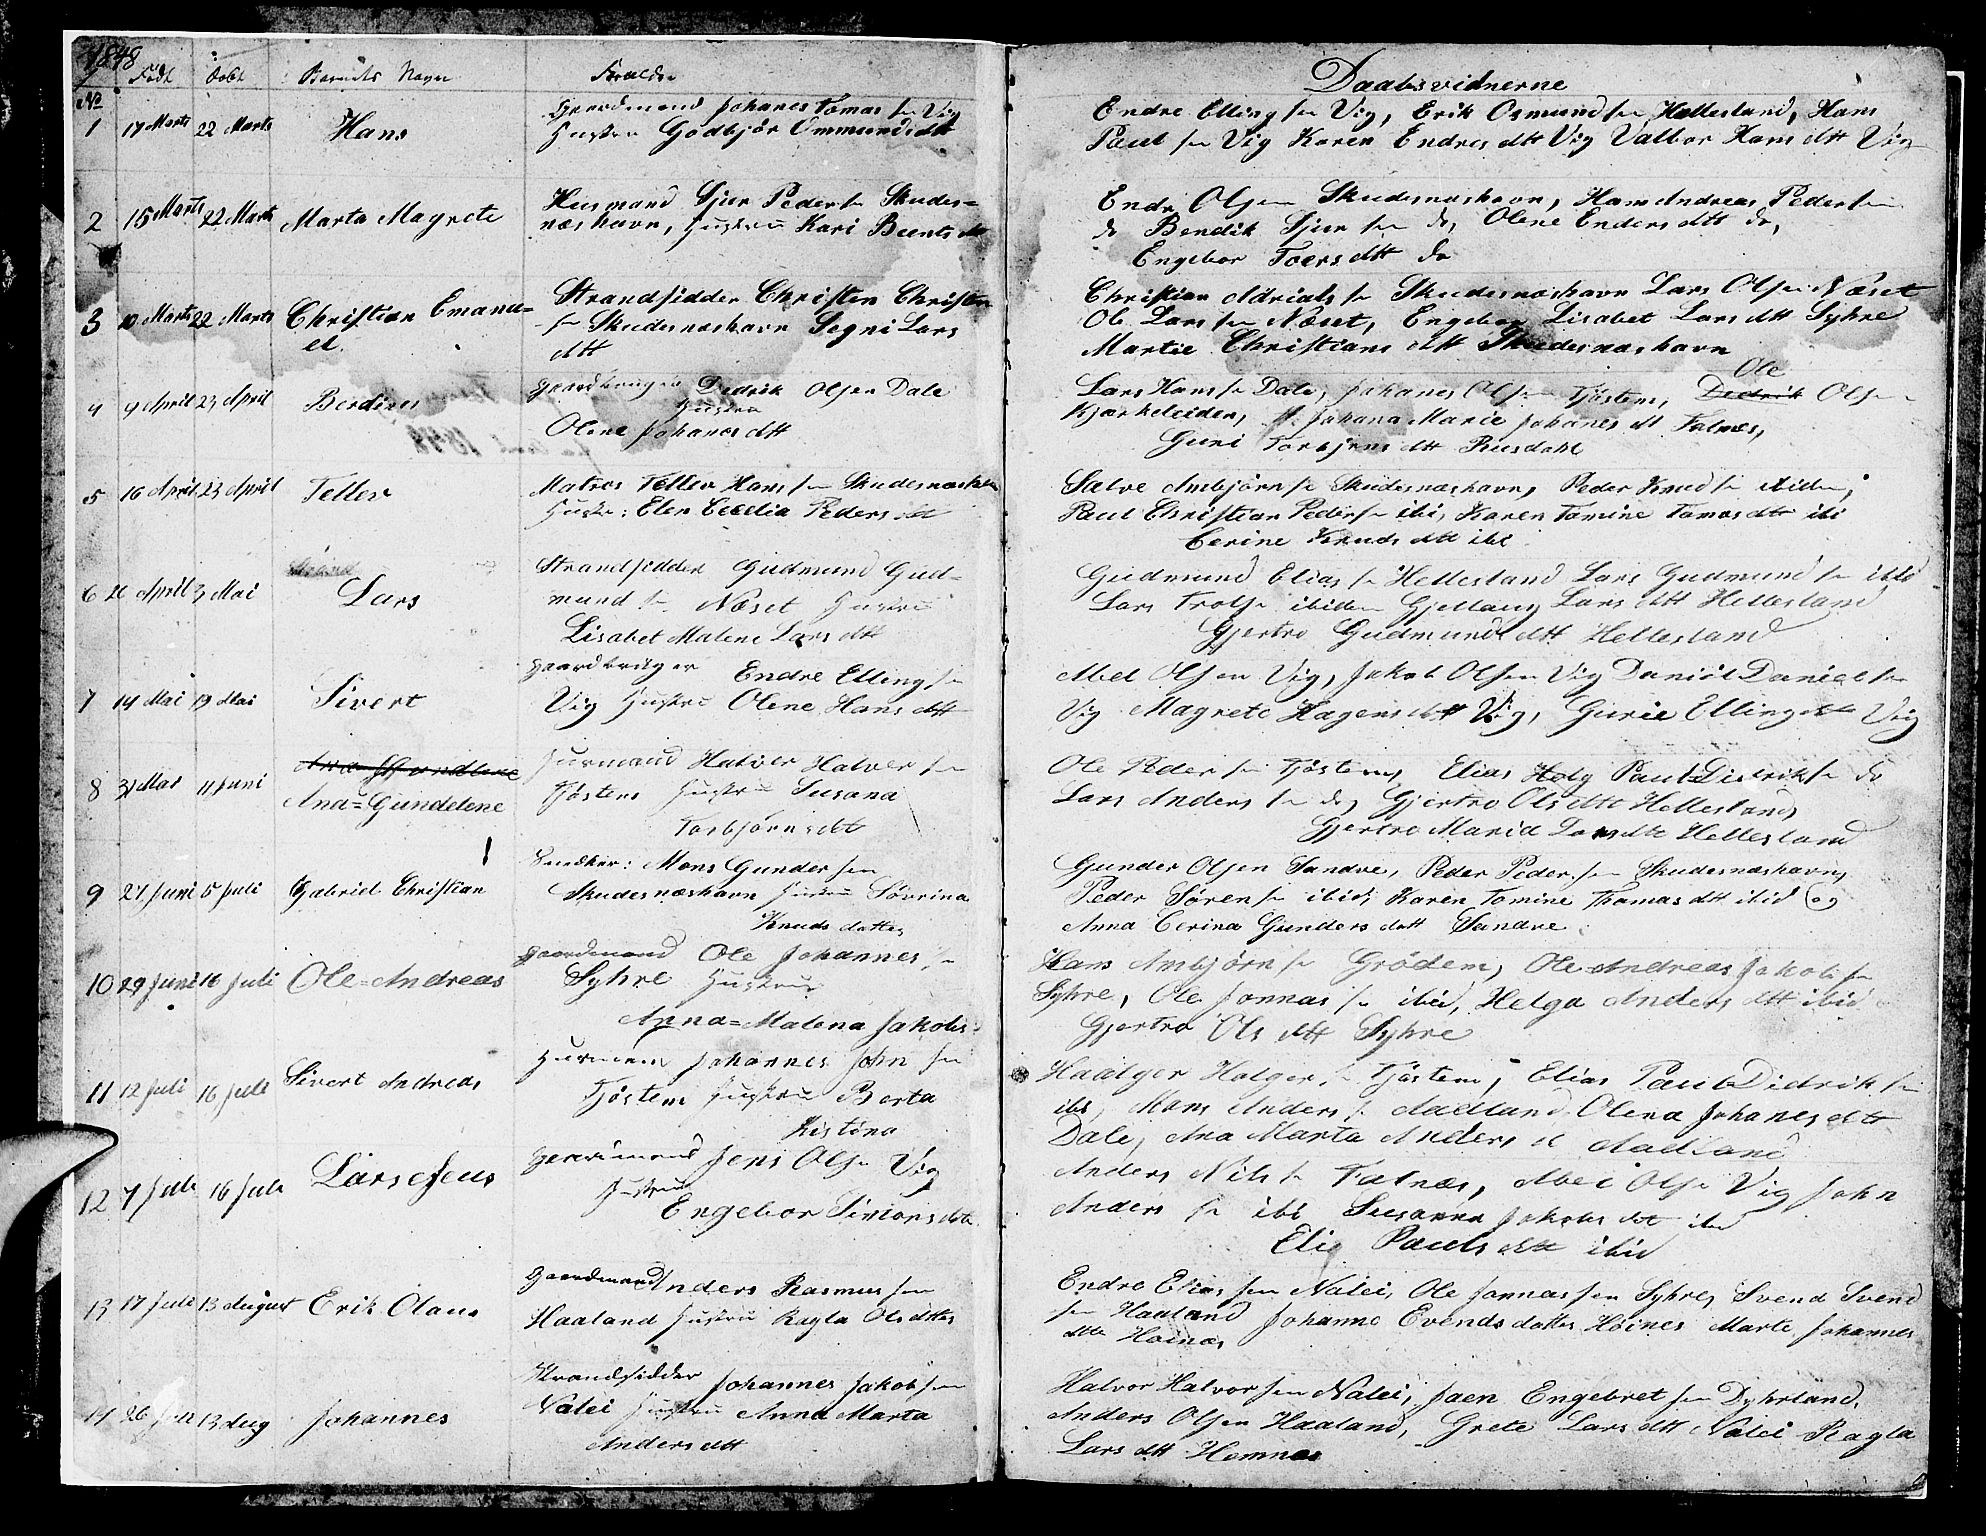 1848
Født Døbt Barnets Navn Forældre
No
1 17 Marts 22 Marts Hans Gaardmand Johanes Tomas sen Vig
Hustru Godbjør Ommundsdtt
2 15 Marts 22 Marts Marta Magrete Husmand Sjur Peder sen Skudes=
næshavn, Hustru Kari Beents dtt
3 10 Marts 22 Marts Christian Emanu=
el. Strandsidder Christen Christen
sen Skudesnæshavn Segni Lars
dtt
4 9 April 23 April Berdines Gaardbruger Dedrik Olsen Dale
Hustru
Olene Johanes dtt
5 16 April 23 April Tellev Matros Tellev Hans sen Skudesnæshavn
Hustr: Elen Cecelia Peders dtt
6 26 April 3 Mai Lars Strandsidder Gudmund Gud=
mund sen Næset Hustru
Lisabet Malene Lars dtt
7 14 Mai 19 Mai Sivert Gaardbruger Endre Elling sen
Vig Hustru Olene Hans dtt
8 31 Mai 11 Juni Ana=Gundelene Husmand Halver Halver sen
Tjøsten Hustru Susana
Torbjørns dtt
9 27 Juni 5 Juli Gabriel Christian Snedker: Mons Gunder sen
Skudesnæshavn Hustru Sovrina
Knuds datter
10 29 Juni 16 Juli Ole=Andreas Gaardmand Ole Johannes sen
Syhre Hustru
Anna=Malena Jakobs
11 12 Juli 16 Juli Sivert Andreas Husmand Johannes John sen
Tjøsten Hustru Berta
Kistina
12 7 Juli 16 Juli Gaardmand Jens Olsen Vig
Hustru
Engebor Simons dtt
13 17 Juli 13 August Erik Olaus Gaardmand Anders Rasmus sen
Haaland Hustru Ragla Ols datter
14 26 Juli 13 Aug Johannes Strandsidder Johannes Jakob sen
Nalei Hustru Anna Marta
Anders dtt
Daabsvidnerne
Endre Elling sen Vig, Erik Osmund sen Hellesland, Hans
Paul sen Vig Karen Endres dtt Vig Valbor Hans dtt Vig
Endr Olsen Skudesnæshavn, Hans Andreas Peder sen
do Bendik Sjur sen do, Olene Enders dtt do,
Engebor Toers dtt do
Christian Adrials sen Skudesnæshavn Lars Olsen Næset
Ole Lars sen Næset, Engebor Lisabet Lars dtt Syhre
Martie Christians dtt Skudesnæshavn
Ole
Lars Hans sen Dale, Johanes Olsen Tjøsten, Dedrik Olsen
Kjørkeleiden, Johana Marie Johanes dt Falnæs,
Guri Torbjørns dtt Rusdahl
Salve Ambjørn sen Skudesnæshavn, Peder Knud sen ibiden,
Paul Christian Peder sen ibi, Karen Tomine Tomas dtt ibi
Cerine Knuds dtt ibi
Gudmund Elias sen Hellesland Lars Gudmund sen ibid
Lars Trolsen ibiden Gjellaug Lars dtt Hellesland
Gjertro Gudmunds dtt Hellesland
Abel Olsen Vig, Jakob Olsen Vig Daniel Daniel sen
Vig Magrete Hagens dtt Vig, Gurie Ellings dtt Vig
Ole Peder sen Tjøsten, Elias Helg Paul Didrik sen do
Lars Anders sen do, Gjertro Ols dtt Hellesland,
Gjertro Maria Lars dtt Hellesland
Gunder Olsen Sandve, Peder Peder sen Skudesnæshavn,
Peder Søren sen ibid, Karen Tomine Thomas dtt ibid og
Anna Cerina Gunders datt Sandve
Hans Ambjørn sen Grødem, Ole Andreas Jakob sen
Syhre, Ole Jonnas sen ibid, Helga Anders dtt ibid
Gjertro Ols dtt Syhre
Haalger Holger sen Tjøsten, Elias Paul Didrik sen
ibi, Mons Anders sen Aadland Olena Johanes dtt
Dale, Ana Marta Anders dt Aadland
Anders Nils sen Falnæs, Abel Olsen Vig John
Anders sen ibi Susanna Jakobs dtt ibid
Elie Pauls dtt ibid
Endre Elias sen Nalei, Ole Jonnas sen Syhre, Svend Svend
sen Haaland Johanne Evends datter Høines Marte Johannes
dtt Høines
Halvor Halvor sen Nalei, Jaen Engebret sen Dyhrland,
Anders Olsen Haaland, Grete Lars dtt Nalei Ragla
Lars dtt Hemnes